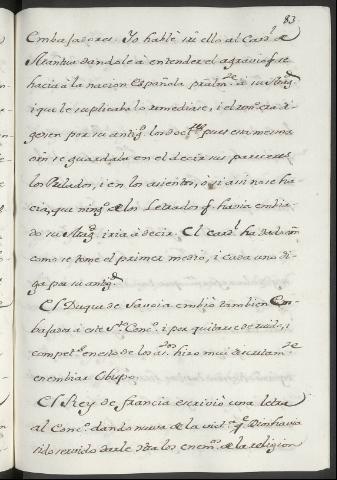 83
Embajadores. Yo hablé en ello al Card.l de
Mantua dandole à entender el agravio q. se
hacia à la nacion Española pralm.te à su Mag.d
i que le suplicaba lo remediase, i el rem.o era
por su antig.d los doct.res pues esta mesma
orn. se guardaba en el decir sus pareceres
los Prelados, i en los asientos, ò si asi no se ha
cia, que ning.o de los Letrados q. havia embia
do su Mag.d iria à decir. El card.l ha dado
como se tome el primer medio, i cada uno di
ga por su antig.d
El Duque de Savoia embiò tambien Em
bajador à este S.to Conc.o i por quitarse de ruido, i
compet.a en esto de los hizo mui discretam.te
en embiar Obispo.
El Rey de Francia escriviò una letra
al Conc.o dando nueva de la vict.a q. Dios havia
sido servido darle contra los enem.os de la religion